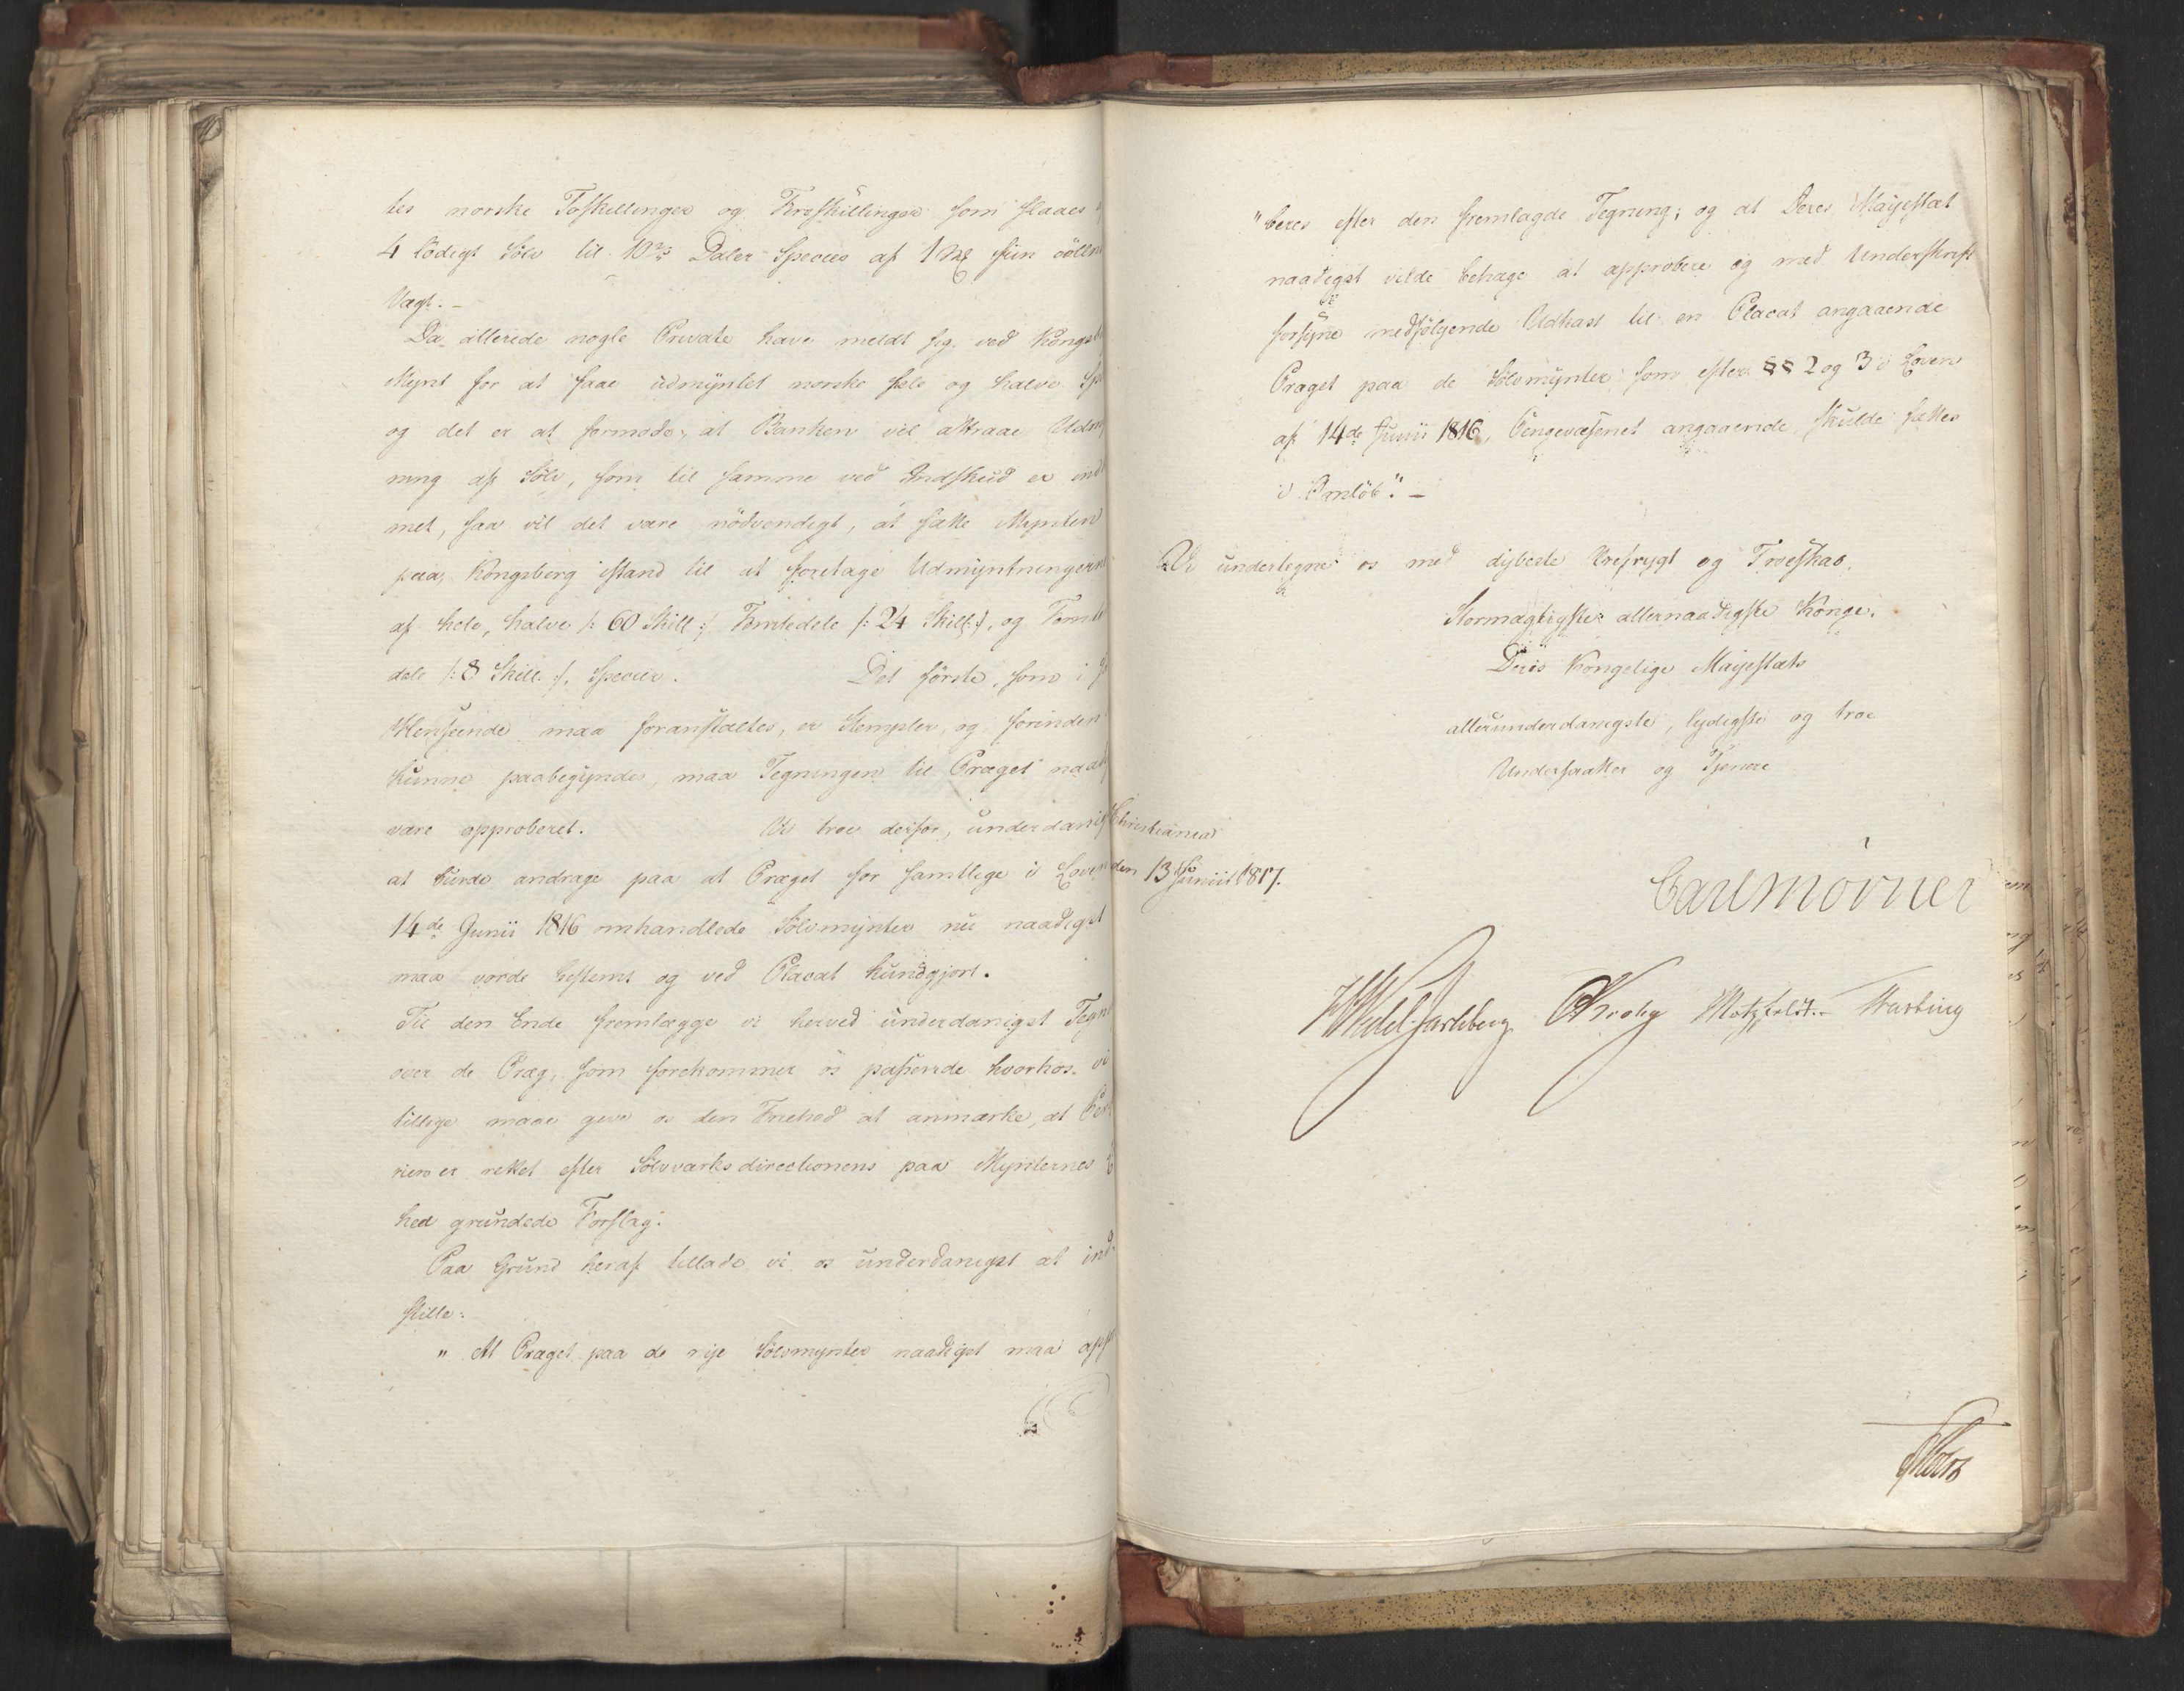 tes norske Toskillinger og Fireskillinger som slaaes
4 lödigt Sölv til 10 2/3 Daler Species af 1 Mk fiin cölln
Vægt. -
Da allerede nogle Private have meldt sig ved Kongsb
Mynt for at faae udmyntet norske hele og halve Sp
og det er at formode, at Banken vil attraae Udmy
ning af Sölv, som til samme ved Indskud er ind
met, saa vil det være nödvendigt, at sætte Mynten
paa Kongsberg istand til at foretage Udmyntningerne
af hele, halve /: 60 Skill :/ Femtedele /: 24 Skill:/, og Femte
dele /: 8 Skill. :/. Specier. Det förste, som i
Henseende maa foranstaltes, er Stempler, og forinden
kunne paabegyndes, maa Tegningen til Præget naad
være approberet. Vi troe derfor, underdanigst
at burde andrage paa at Præget for samtlige i Loven
14de Junii 1816 omhandlede Sölvmynter nu naadigst
maa vorde bestemt og ved Placat kundgjort.
Til den Ende fremlægge vi herved underdanigst Tegn
over de Præg, som forekommer os passende hvorhos vi
tillige maae give os den Friehed at anmærke, at
rien er rettet efter Sölvværksdirectionens paa Mynternes
hed grundede Forslag.
Paa Grund heraf tillade vi os underdanigst at ind-
stille:
" At Præget paa de nye Sölvmynter naadigst maa app
"beres efter den fremlagde Tegning; og at Deres Mayestæt
naadigst vilde behage at approbere og med Underskrift
forsyne medfölgende Udkast til en Placat angaaende
Præget paa de Sölvmynter som efter §§ 2 og 3 i Loven
af 14de Junii 1816, Pengevæsenet angaaende, skulde sættes
i Omlöb". -
Vi undertegne os med dybeste Ærefrygt og Troeskab.
Stormægtigste allernaadigste Konge.
Deres Kongelige Mayestæts
allerunderdanigste, lydigste og troe
Undersaatter og Tjenere
Christiania
den 13 Junii 1817.
Carl Mörner
HWedel Jarlsberg Krohg Motzfeldt.- Hartving